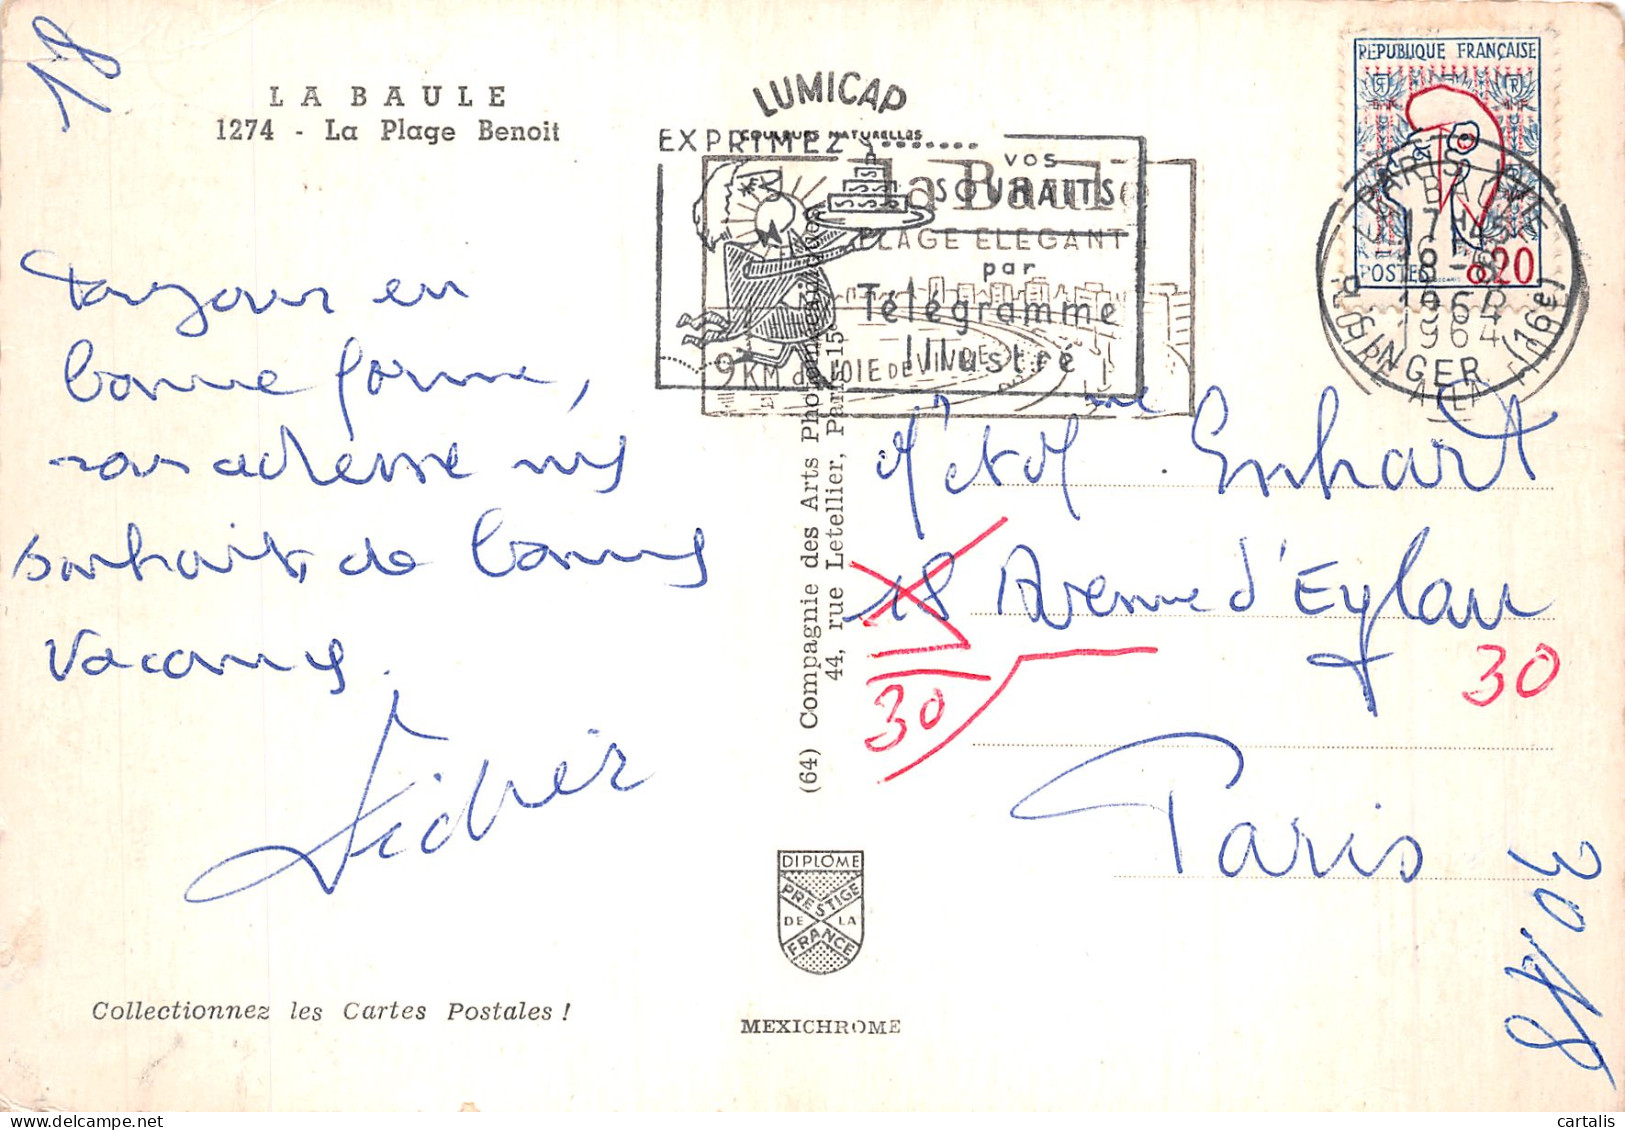 18
LA BAULE
1274 - La Plage Benoit
LUMICAP
COULEURS NATURELLES
EXPRIMEZ
VOS
SOUHAITS
par
Télégramme
Illustré
La Baule
PLAGE ELEGANTE
9 KM de JOIE DE VIVRE
REPUBLIQUE FRANÇAISE
POSTES 0,20
PARIS
17H45
16 - 8
1964
1964
R. SINGER (16e)
Toujours en
bonne forme,
vous adresse mes
souhaits de bonnes
vacances.
Didier
(64) Compagnie des Arts Photomécaniques
44, rue Letellier, Paris-15e
Mr et Me Enhart
18 Avenue d'Eylau
30
30
Paris
30
18
DIPLÔME
PRESTIGE
DE LA
FRANCE
Collectionnez les Cartes Postales !
MEXICHROME
cartalis